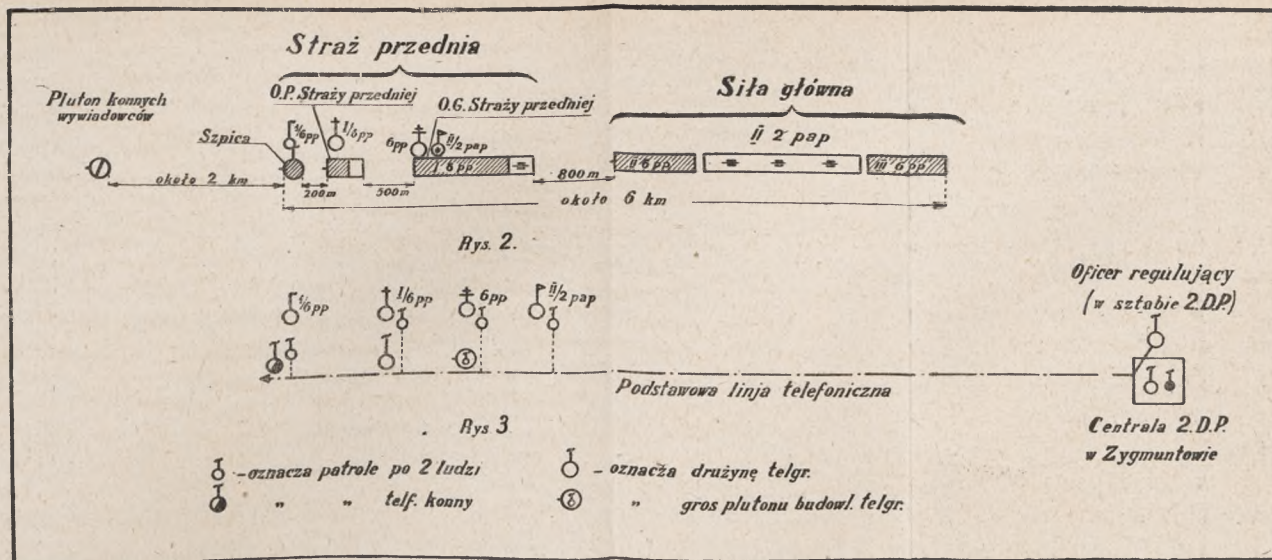 Straż przednia
Pluton konnych
wywiadowców
O.P. Straży przedniej
O.G. Straży przedniej
Siła główna
II 2 pap
Szpica
1/6pp
I/6pp
6pp
II/2 pap
I 6 pp
II 6 pp
III 6 pp
około 2 km
200m
500m
800m
około 6 km
Rys. 2.
1/6pp
I/6pp
6pp
II/2 pap
Oficer regulujący
(w sztabie 2.D.P.)
Podstawowa linja telefoniczna
Centrala 2.D.P.
w Zygmuntowie
Rys 3
-oznacza patrole po 2 ludzi
" " telf. konny
- oznacza drużynę telgr.
" gros plutonu budowl. telgr.